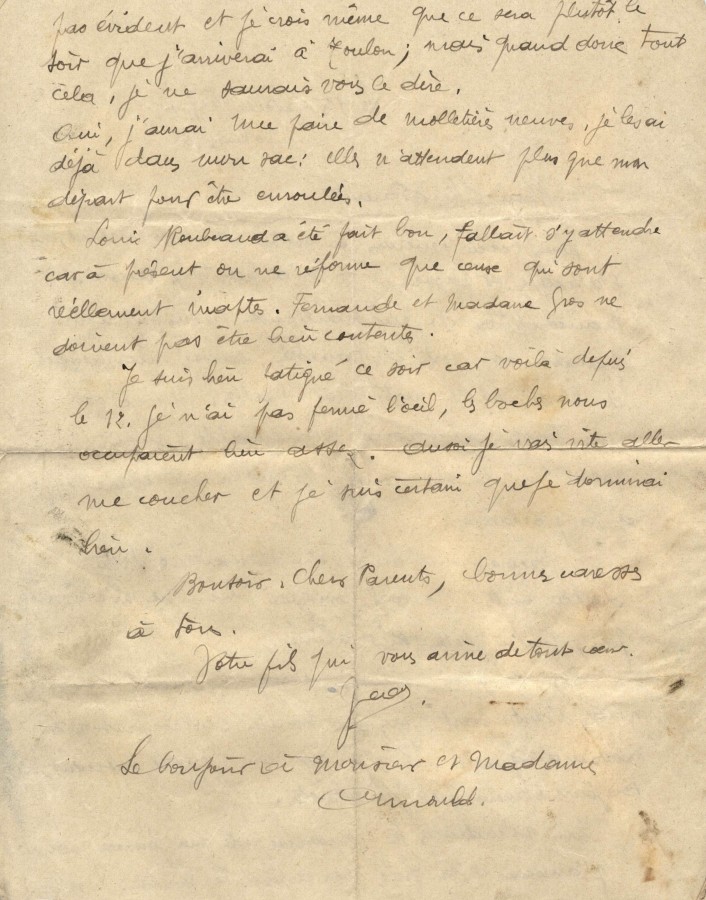 pas évident et je crois même que ce sera plutôt le
soir que j'arriverai à Toulon; mais quand donc tout
cela, je ne saurais vous le dire.
Oui, j'aurai une paire de molletières neuves, je les ai
déjà dans mon sac: elles n'attendent plus que mon
départ pour être enroulées.
Louis a été fait bon, fallait s'y attendre
car à présent on ne réforme que ceux qui sont
réellement inaptes. Fernande et Madame Gros ne
doivent pas être bien contentes.
Je suis bien fatigué ce soir car voilà depuis
le 12. je n'ai pas fermé l'oeil, les boches nous
occupaient bien assez. Aussi je vais vite aller
me coucher et je suis certain que je dormirai
bien.
Bonsoir, Chers Parents, bonnes caresses
à tous.
Votre fils qui vous aime de tout coeur.
Le bonjour à Monsieur et Madame
Arnould.